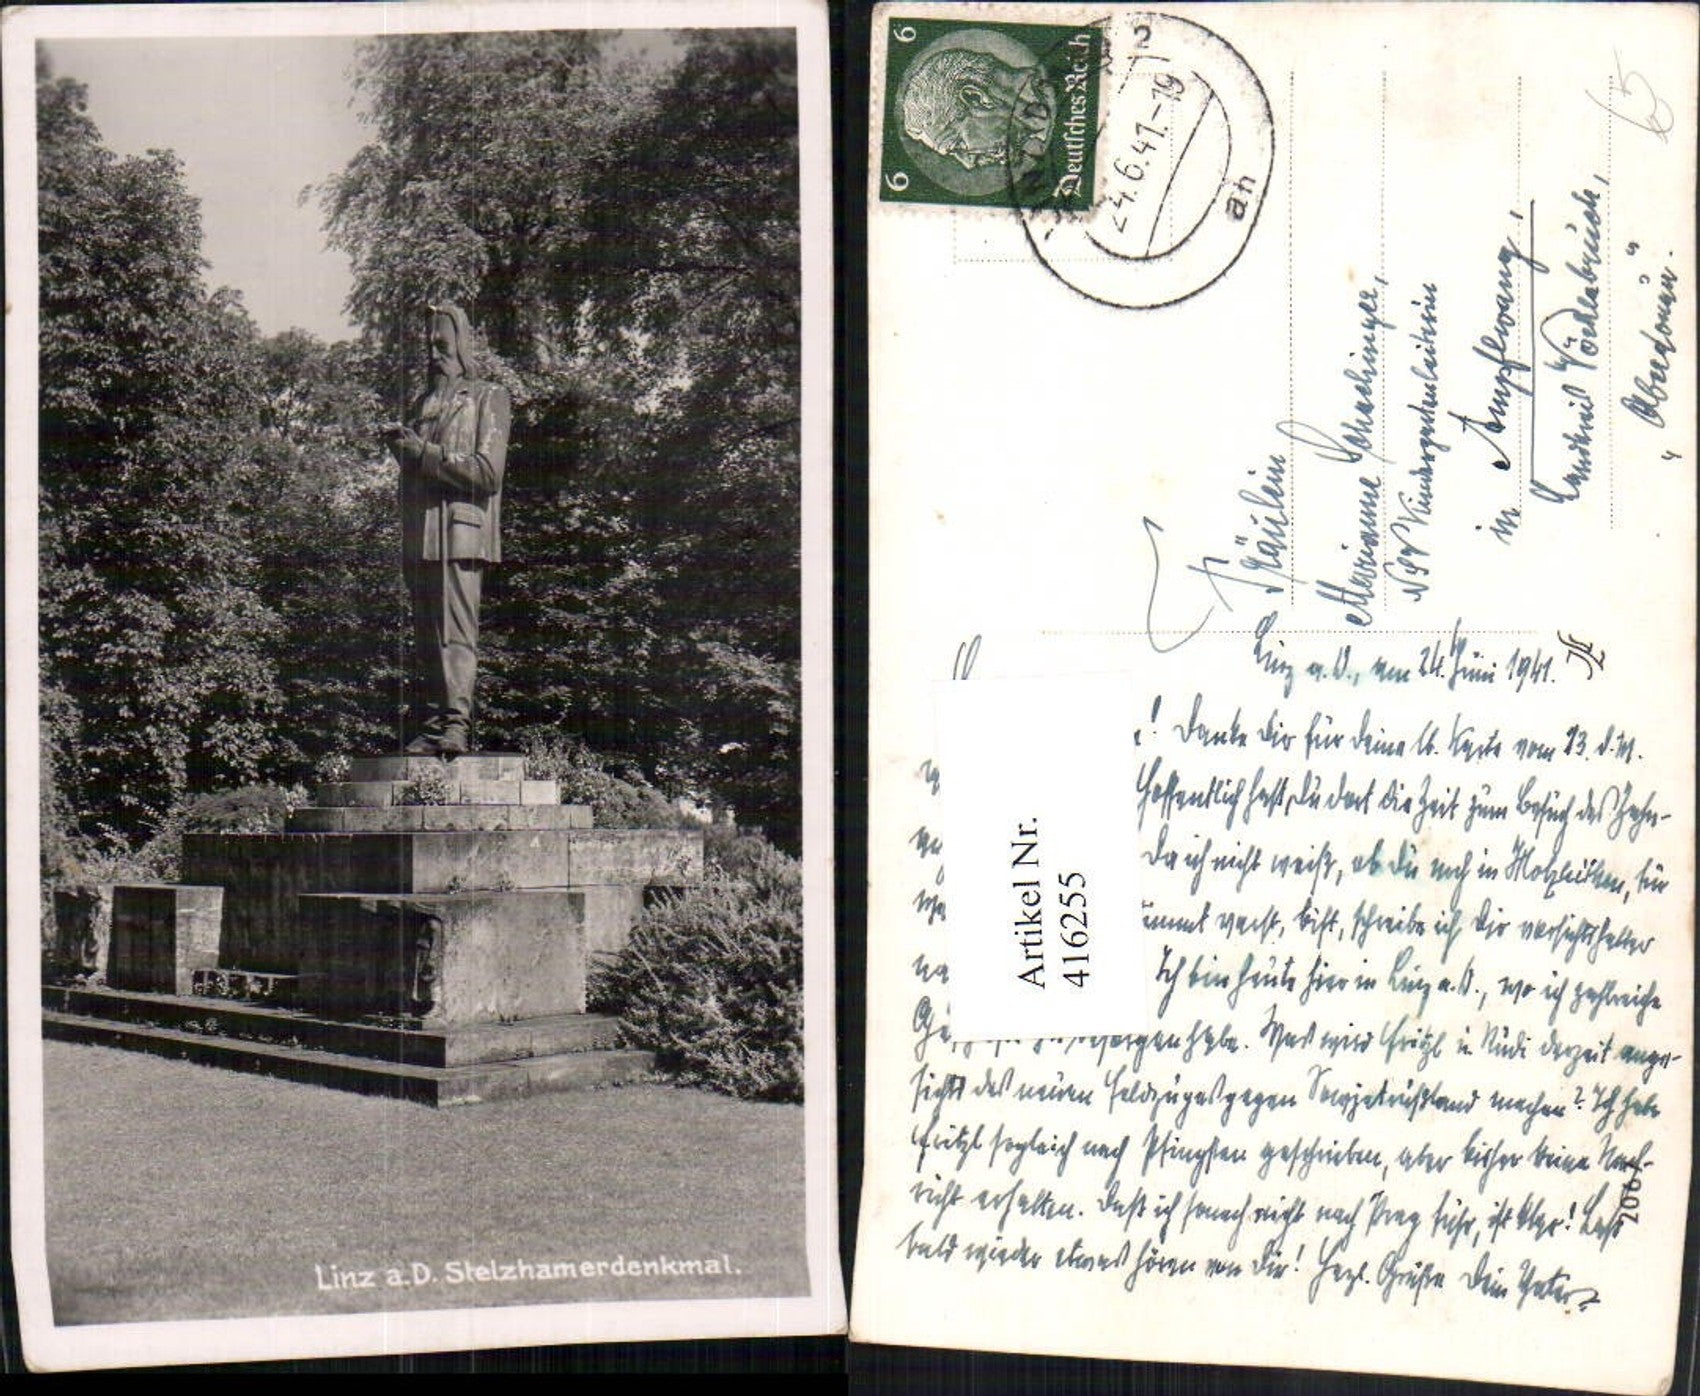 Linz a.D. Stelzhamerdenkmal.
6
6
Deutsches Reich
24.6.41.-19
an
Fräulein
Marianne
NSV Kindergartenleiterin
in Ampflwang,
Landkreis Vöcklabruck,
"Oberdonau".
Linz a. D., am 24. Juni 1941.
! Danke Dir für Deine lb. Karte vom 23. d. M.
Hoffentlich hast Du dort die Zeit zum Besuch des Zahn-
Da ich nicht weiß, ob Du noch in, bin
bist, schreibe ich Dir vorsichtshalber
Ich bin heute hier in Linz a. D., wo ich zahlreiche
habe. Was wird Fritzl u. Rudi derzeit ange-
sichts des neuen Feldzuges gegen Sowjetrußland machen? Ich habe
Fritzl sogleich nach Pfingsten geschrieben, aber bisher keine Nach-
richt erhalten. Daß ich sonach nicht nach Prag fuhr, ist klar! Laß
bald wieder etwas hören von Dir! Herzl. Grüße Dein Vater
Artikel Nr.
416255